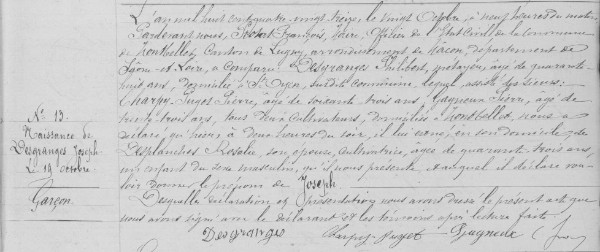 L'an mil huit cent quatre-vingt treize, le vingt Octobre, à neuf heures du matin
Pardevant nous, François, Maire, Officier de l'Etat Civil de la Commune
de Montbellet, Canton de Lugny, arrondissement de Macon, département de
Saône et Loire, a comparu Desgranges Philibert, âgé de quarante-
huit ans, domicilié à St Oyen, susdite commune, lequel, assisté des sieurs:
Charpy-Juget Pierre, âgé de soixante trois ans, Gagneux Pierre, âgé de
trois ans, tous deux Cultivateurs, domiciliés à Montbellet, nous a
déclaré qu'hier, à deux heures du soir, il lui est né, en son domicile, de
Desplanches Rosalie, son épouse, Cultivatrice, âgée de quarante trois ans,
un enfant du sexe masculin, qu'il nous présente et auquel il déclare vou-
loir donner le prénom de Joseph
Desquelles déclaration et présentation nous avons dressé le présent acte que
nous avons signé avec le déclarant et les témoins après lecture faite.
Desgranges Charpy-Juget Gagneux
No 13
Naissance de
Desgranges Joseph
le 19 Octobre
Garçon.